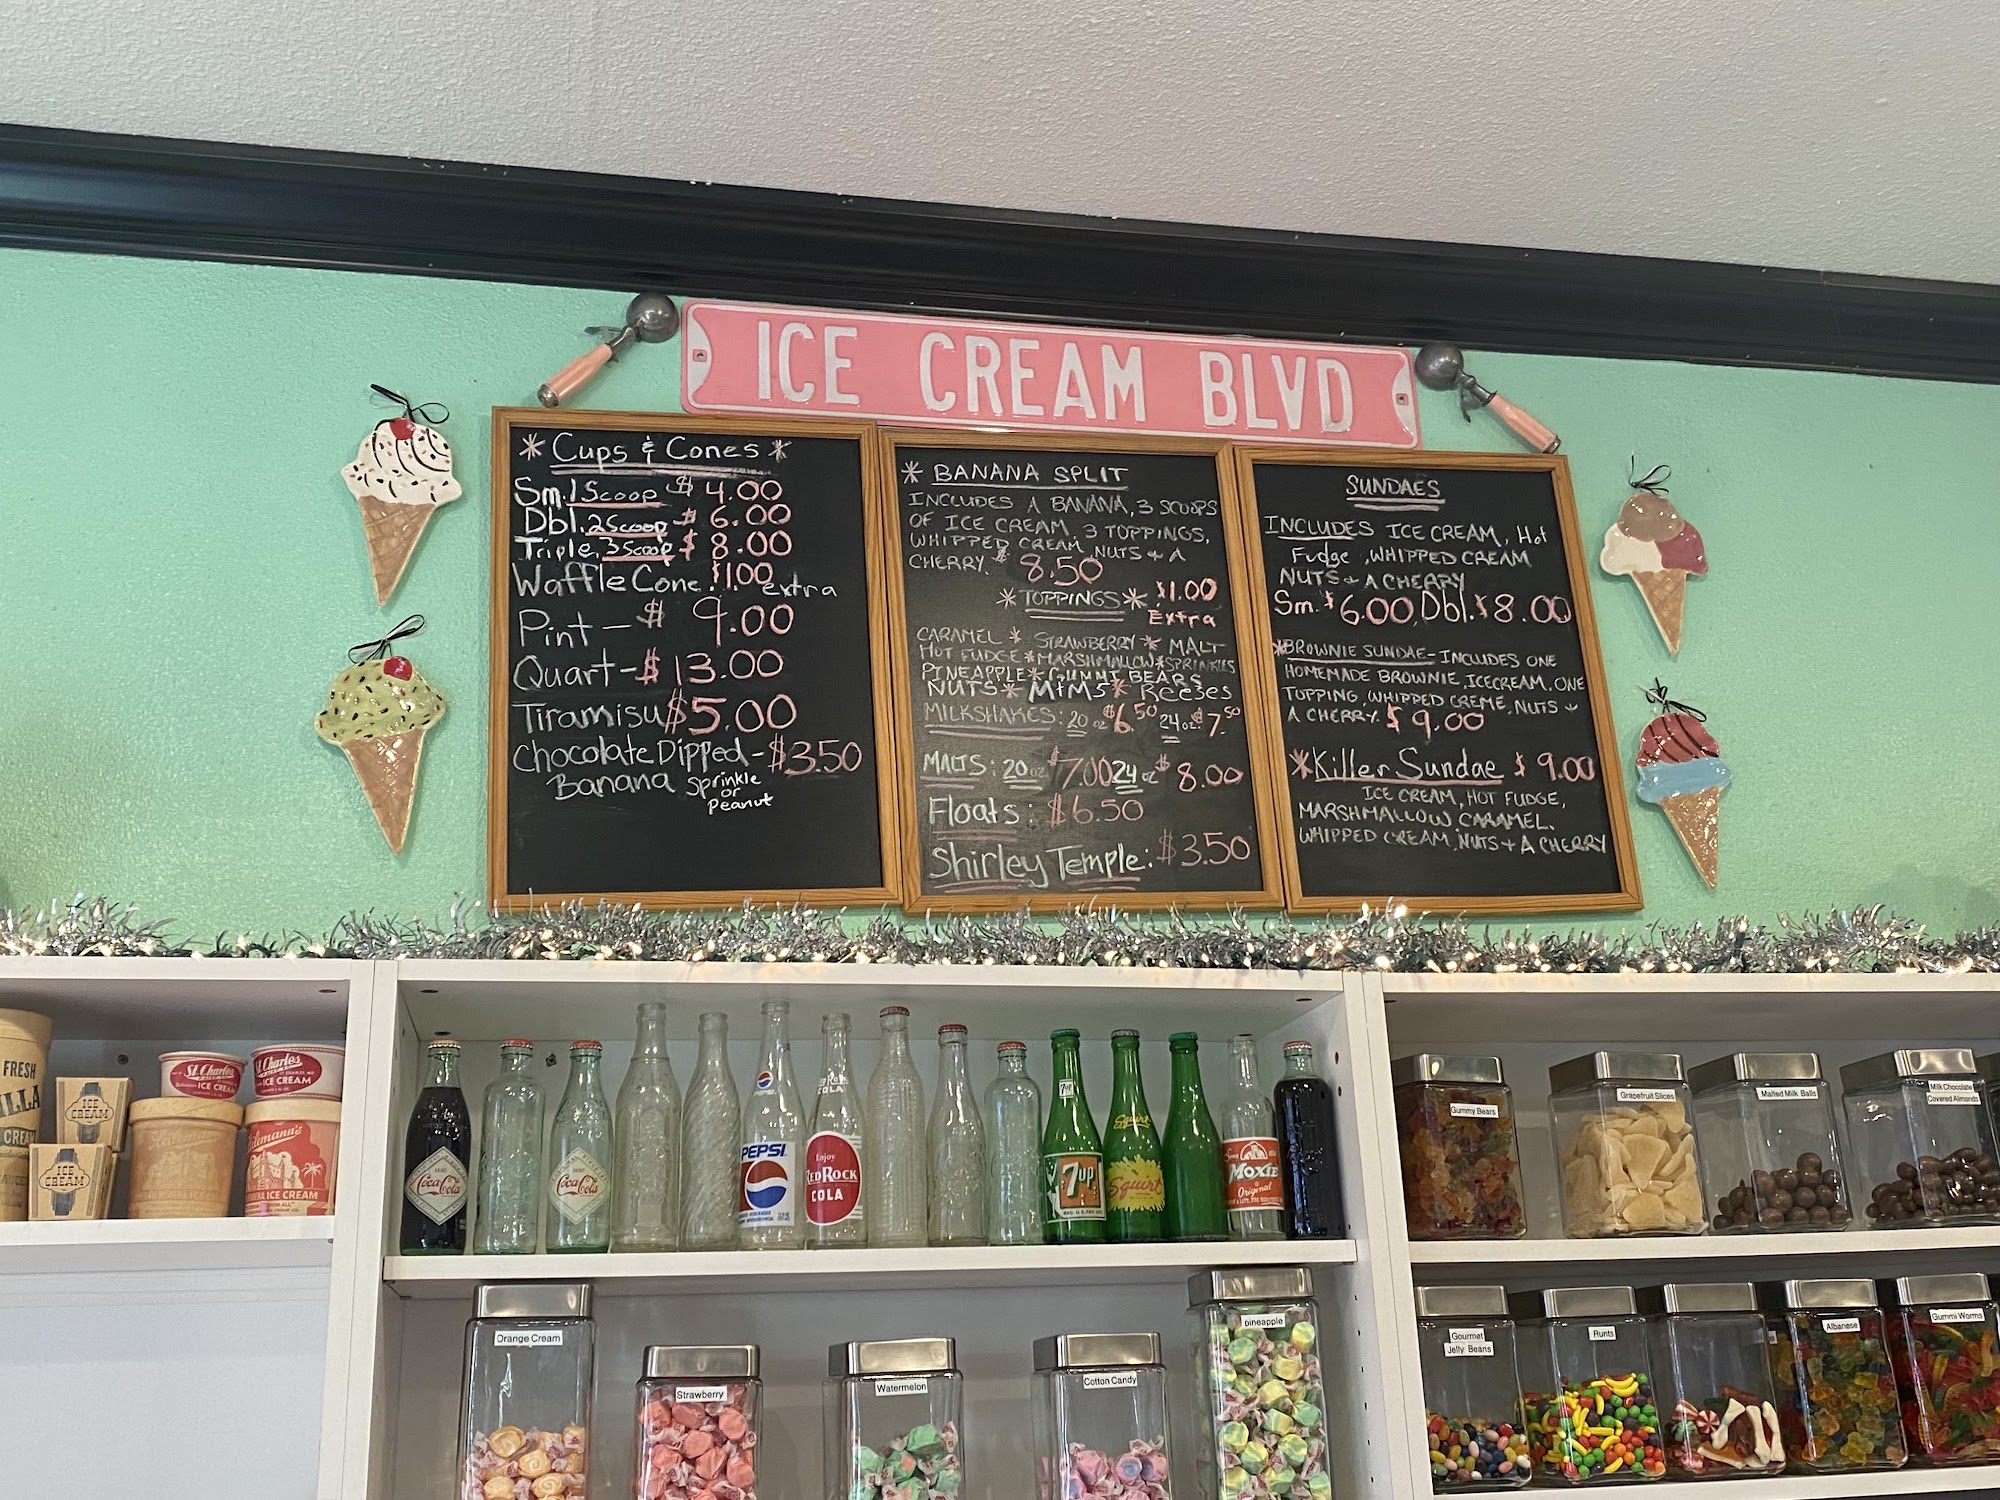 ICE CREAM BLVD
* Cups & Cones *
Sm. 1 Scoop $ 4.00
Dbl. 2 Scoop $ 6.00
Triple. 3 Scoop $ 8.00
Waffle Cone. $1.00 extra
Pint - $ 9.00
Quart - $ 13.00
Tiramisu $5.00
Chocolate Dipped - $3.50
Banana sprinkle
or
peanut
* BANANA SPLIT
INCLUDES A BANANA, 3 SCOOPS
OF ICE CREAM, 3 TOPPINGS,
WHIPPED CREAM, NUTS + A
CHERRY. $ 8.50
* TOPPINGS * $1.00
Extra
CARAMEL * STRAWBERRY * MALT
HOT FUDGE * MARSHMALLOW * SPRINKLES
PINEAPPLE * GUMMI BEARS
NUTS * M+M'S * Reeses
MILKSHAKES: 20 oz $6.50 24 oz. $7.50
MALTS: 20 oz $7.00 24 oz $8.00
Floats: $6.50
Shirley Temple: $3.50
SUNDAES
INCLUDES ICE CREAM, Hot
Fudge, WHIPPED CREAM
NUTS + A CHERRY
Sm. $6.00, Dbl. $8.00
*BROWNIE SUNDAE - INCLUDES ONE
HOMEMADE BROWNIE, ICECREAM, ONE
TOPPING, WHIPPED CREME, NUTS +
A CHERRY. $ 9.00
*Killer Sundae $ 9.00
ICE CREAM, HOT FUDGE,
MARSHMALLOW CARAMEL,
WHIPPED CREAM, NUTS + A CHERRY
FRESH
CREAM
ICE
CREAM
ICE
CREAM
St. Charles
ICE CREAM
St. Charles
ICE CREAM
ICE CREAM
Coca-Cola
Coca-Cola
PEPSI
PEPSI
COLA
Enjoy
RED ROCK
COLA
7up
7up
Squirt
Squirt
MOXIE
Original
Gummy Bears
Grapefruit Slices
Malted Milk Balls
Milk Chocolate
Covered Almonds
Orange Cream
Strawberry
Watermelon
Cotton Candy
pineapple
Gourmet
Jelly Beans
Runts
Albanese
Gummi Worms